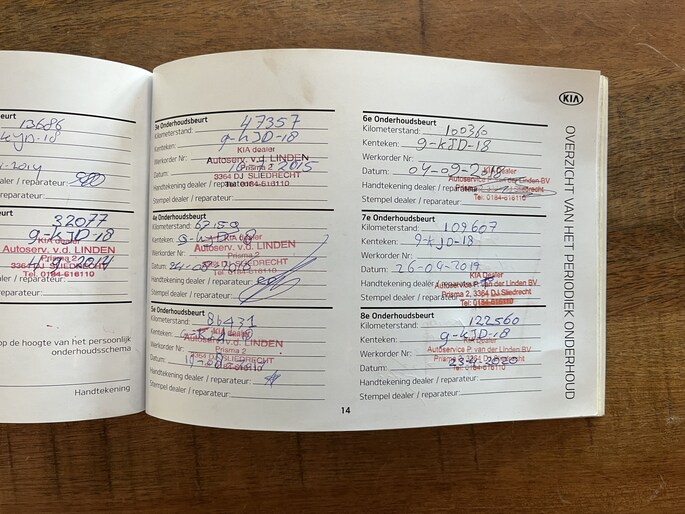 eurt
13686
aler / reparateur:
eurt
32077
g-kJD-18
KIA dealer
Autoserv. v.d. LINDEN
Prisma 2
3364 DJ SLIEDRECHT
Tel. 0184-616110
aler / reparateur:
op de hoogte van het persoonlijk
onderhoudsschema
Handtekening
3e Onderhoudsbeurt
Kilometerstand: 47357
Kenteken: g-kJD-18
KIA dealer
Werkorder Nr: Autoserv. v.d. LINDEN
Prisma 2
Datum: 2015
3364 DJ SLIEDRECHT
Handtekening dealer / reparateur:
Tel. 0184-616110
Stempel dealer / reparateur:
4e Onderhoudsbeurt
Kilometerstand:
Kenteken: g-kJD-18
KIA dealer
Werkorder Nr: Autoserv. v.d. LINDEN
Prisma 2
Datum:
3364 DJ SLIEDRECHT
Handtekening dealer / reparateur:
Tel. 0184-616110
Stempel dealer / reparateur:
5e Onderhoudsbeurt
Kilometerstand: 86431
Kenteken:
KIA dealer
Werkorder Nr: Autoserv. v.d. LINDEN
Prisma 2
Datum:
3364 DJ SLIEDRECHT
Handtekening dealer / reparateur:
Stempel dealer / reparateur:
14
6e Onderhoudsbeurt
Kilometerstand: 100360
Kenteken: g-kJD-18
Werkorder Nr:
Datum: 04-09-2018
KIA Dealer
Autoservice P. van der Linden BV
Handtekening dealer / reparateur:
Prisma 2, 3364 DJ Sliedrecht
Tel: 0184-616110
Stempel dealer / reparateur:
7e Onderhoudsbeurt
Kilometerstand: 109607
Kenteken: g-kJD-18
Werkorder Nr:
Datum: 26-04-2019
KIA Dealer
Handtekening dealer / reparateur:
Autoservice P. van der Linden BV
Prisma 2, 3364 DJ Sliedrecht
Stempel dealer / reparateur:
Tel: 0184-616110
8e Onderhoudsbeurt
Kilometerstand: 122560
Kenteken: g-kJD-18
KIA Dealer
Werkorder Nr: Autoservice P. van der Linden BV
Prisma 2, 3364 DJ Sliedrecht
Datum: 23-4-2020
Tel: 0184-616110
Handtekening dealer / reparateur:
Stempel dealer / reparateur:
KIA
OVERZICHT VAN HET PERIODIEK ONDERHOUD